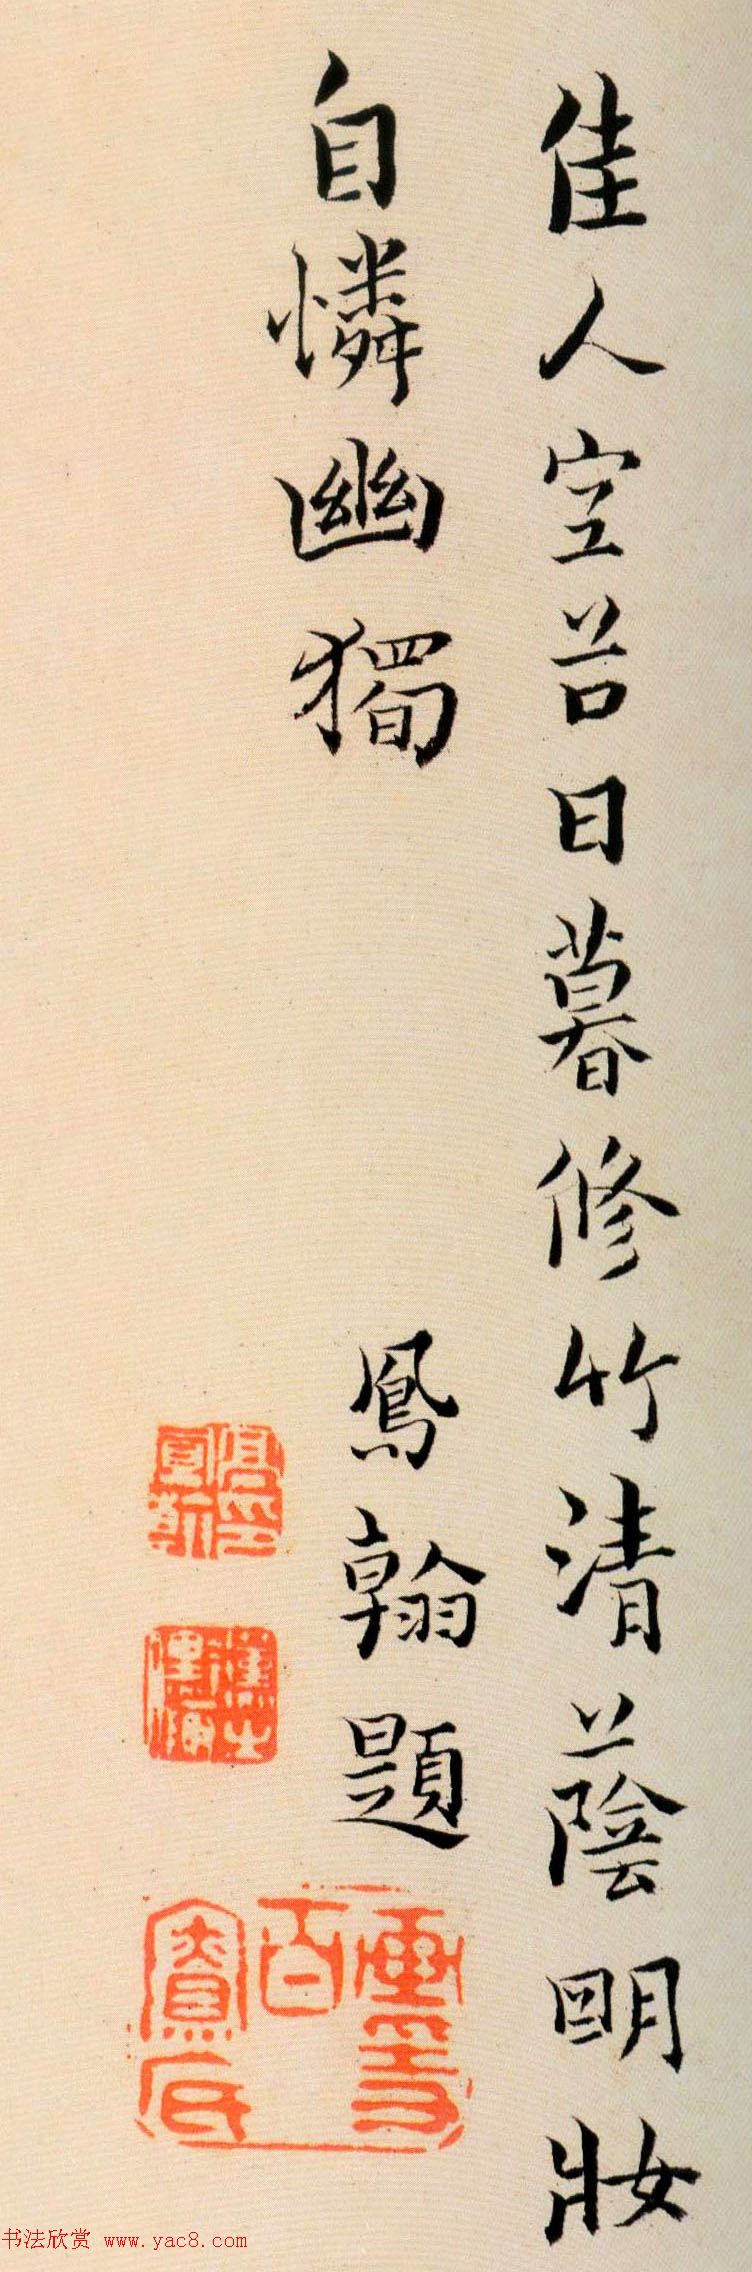 佳人空谷日暮修竹清蔭朙妝
自憐幽獨
鳳翰題
书法欣赏 www.yac8.com